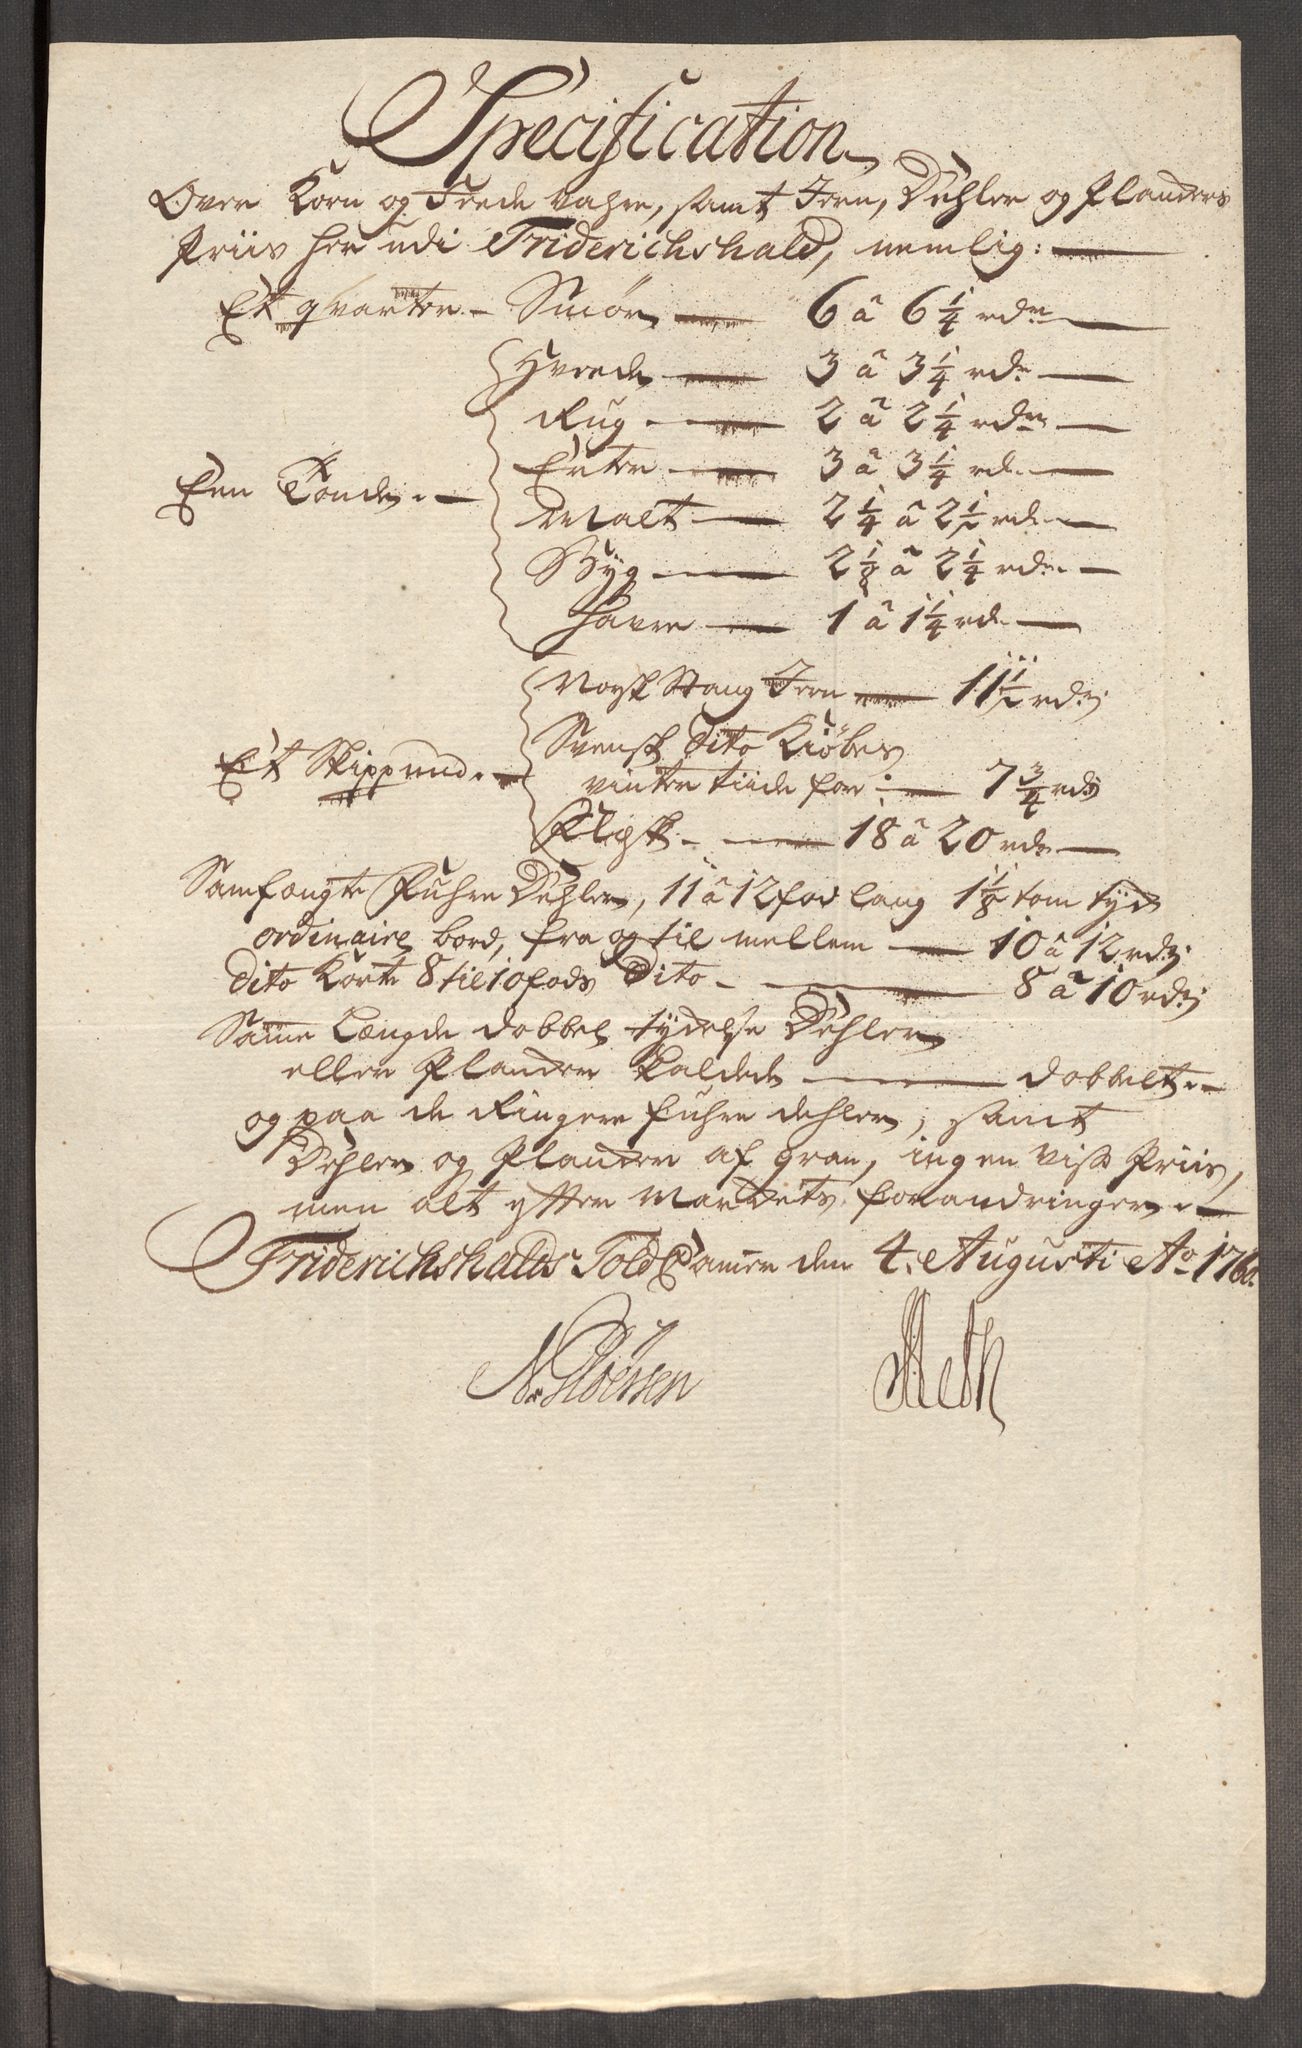 Specification
Over Korn og Feede Vahre, samt Jern, Dehler og Planckers
Priis her udi Friderichshald, nemlig:
Et qvarter - Smør 6 â 6 1/4 rdr
Hvede 3 â 3 1/4 rdr
Rug 2 â 2 1/4 rdr
Erter 3 â 3 1/4 rd
Een Tønde Malt 2 1/4 â 2 1/2 rdr
Byg 2 1/8 â 2 1/4 rdr
Havre 1 â 1 1/4 rd
Norsk Stang Jern 11 1/2 rdr
Svensk dito Kiøbes
Et Skippund vinter tiide for 7 3/4 rd
Flesk 18 â 20 rdr
Samfængte Fuhre Dehler, 11 â 12 fod lang 1 1/8 tom tyk
ordinaire bord, fra og til mellem 10 â 12 rd
dito Korte 8 til 10 fods Dito 8 â 10 rd
Same Længde dobbel tydelse Dehler
eller Plancker kaldede dobbelt
og paa de Ringere fuhre dehler, samt
Dehler og Plancker af gran, ingen viss Priis,
men alt efter Marckets forandringer
Friderichshalds Told Camer den 4. Augusti Ao 1760.